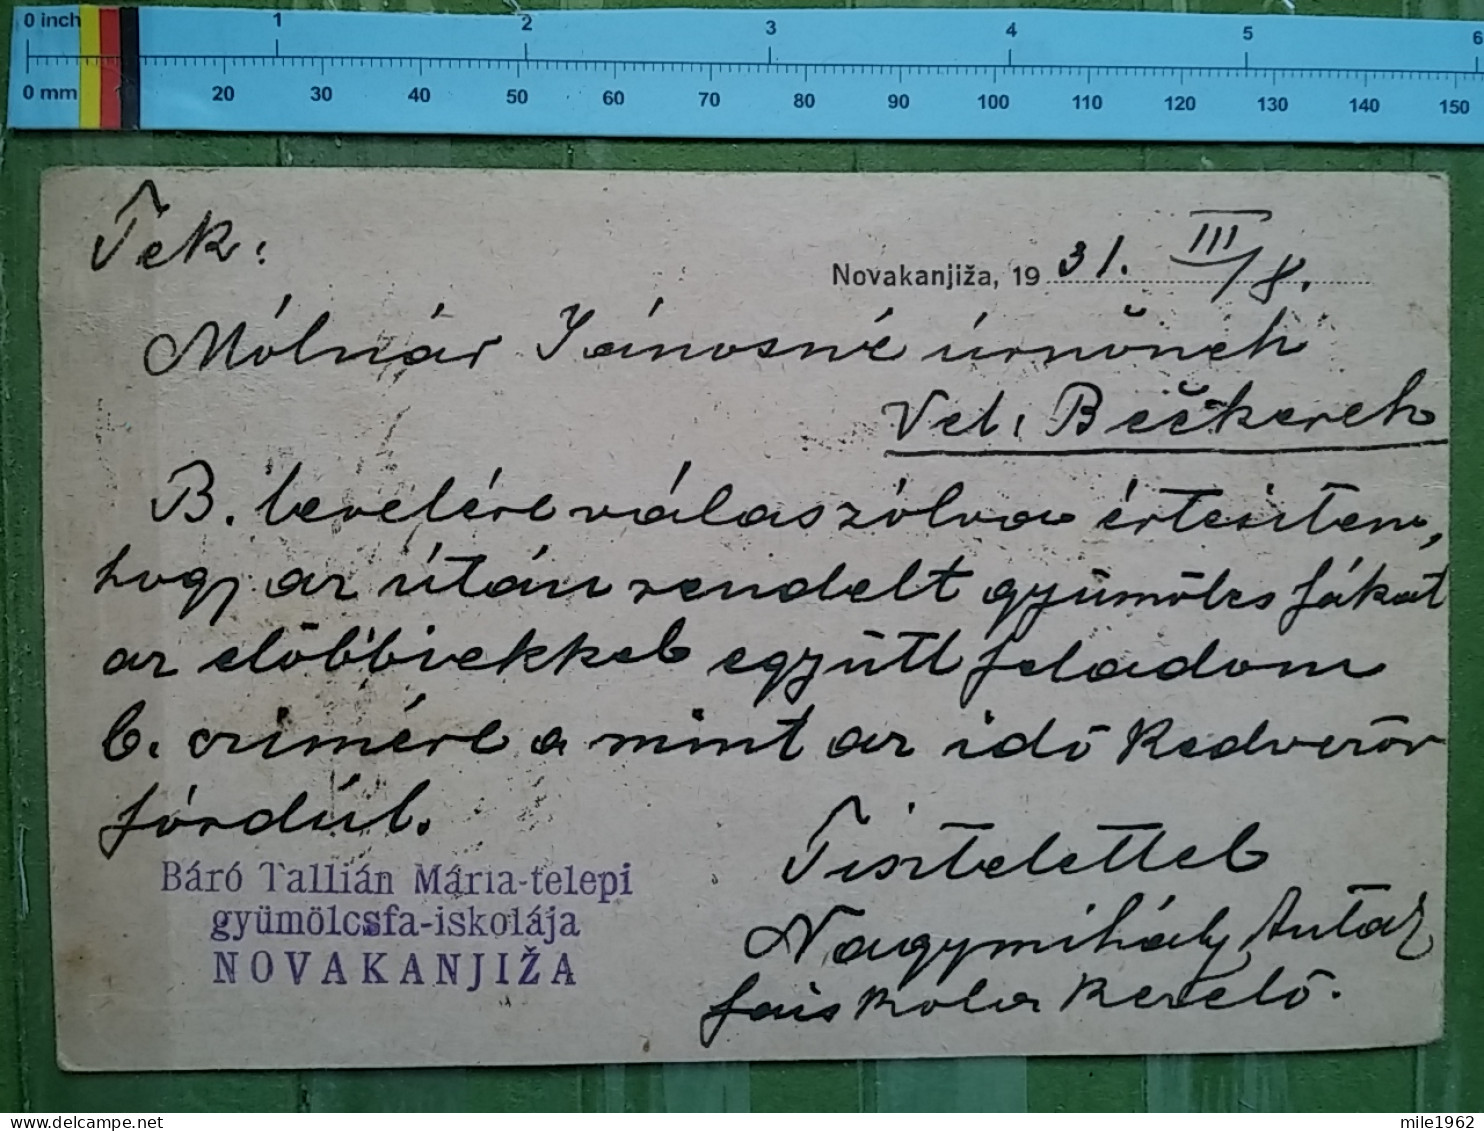 0 inch 1 2 3 4 5 6
0 mm 20 30 40 50 60 70 80 90 100 110 120 130 140 150
Tek:
Novakanjiža, 19 31. III/8.
Mólnár Jánosné úrnőnek
Vel. Bečkerek
B. levelére válaszólva értesitem,
hogy az útán rendelt gyümölcs fákat
az előbbiekkel együtt feladom
b. czimére a mint az idő kedvezőv
fórdúl.
Tisztelettel
Báró Tallián Mária-telepi
gyümölcsfa-iskolája
NOVAKANJIŽA
Nagymihály Antal
faiskola kezelő.
mile1962